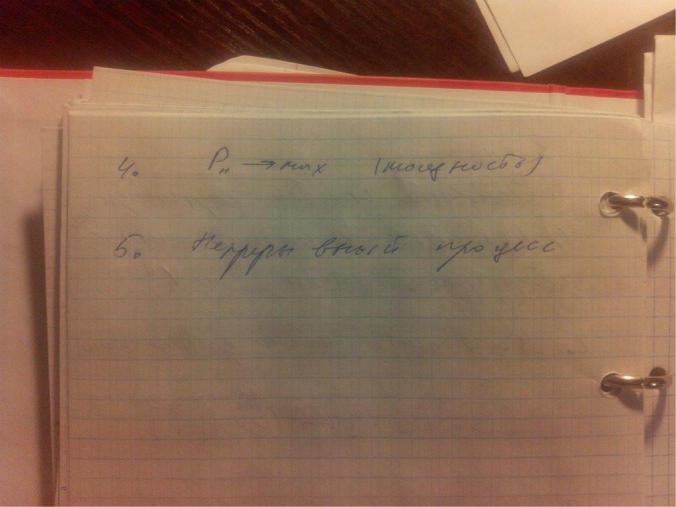 4. Pн → max (мощность)
5. Непрерывный процесс